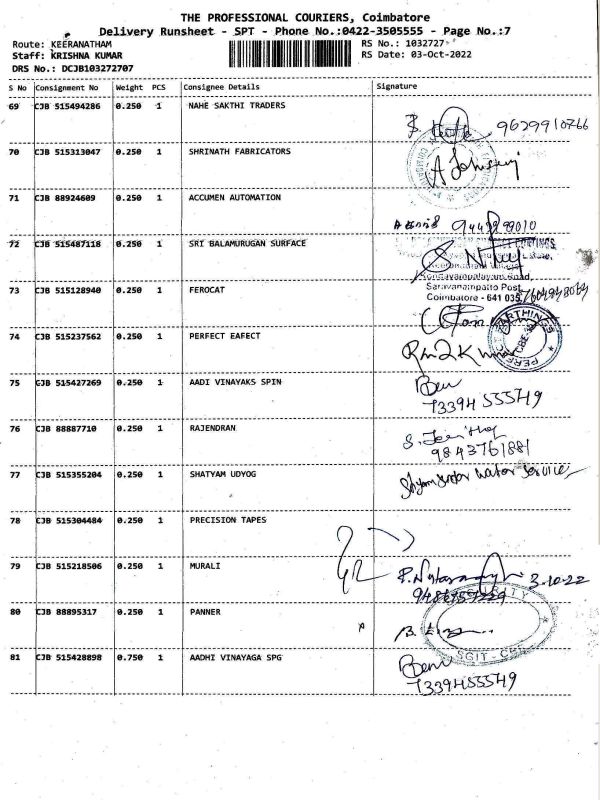 THE PROFESSIONAL COURIERS, Coimbatore
Delivery Runsheet - SPT - Phone No.:0422-3505555 - Page No.:7
Route: KEERANATHAM RS No.: 1032727
Staff: KRISHNA KUMAR RS Date: 03-Oct-2022
DRS No.: DCJB103272707
S No Consignment No Weight PCS Consignee Details Signature
69 CJB 515494286 0.250 1 NAHE SAKTHI TRADERS
9629910766
70 CJB 515313047 0.250 1 SHRINATH FABRICATORS
71 CJB 88924609 0.250 1 ACCUMEN AUTOMATION
72 CJB 515487118 0.250 1 SRI BALAMURUGAN SURFACE
Saravanampatto Post
73 CJB 515128940 0.250 1 FEROCAT
Coimbatore - 641 035
74 CJB 515237562 0.250 1 PERFECT EAFECT
75 CJB 515427269 0.250 1 AADI VINAYAKS SPIN
73394 55549
76 CJB 88887710 0.250 1 RAJENDRAN
9843761881
77 CJB 515355204 0.250 1 SHATYAM UDYOG
Water Service
78 CJB 515304484 0.250 1 PRECISION TAPES
79 CJB 515218506 0.250 1 MURALI
3-10-22
80 CJB 88895317 0.250 1 PANNER
81 CJB 515428898 0.750 1 AADHI VINAYAGA SPG
7339455549